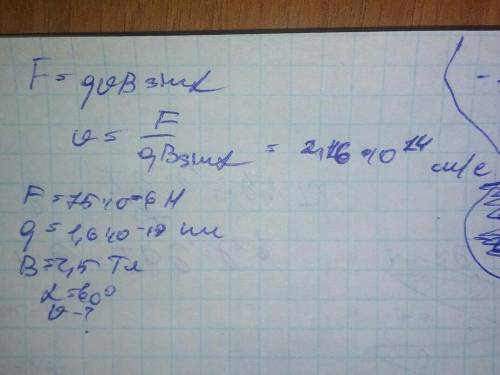 F = qυB sin α
υ = F / qB sin α = 2,16·10¹⁴ м/с
F = 75·10-6 Н
q = 1,6·10-19 кл
B = 2,5 Тл
α = 60°
υ - ?